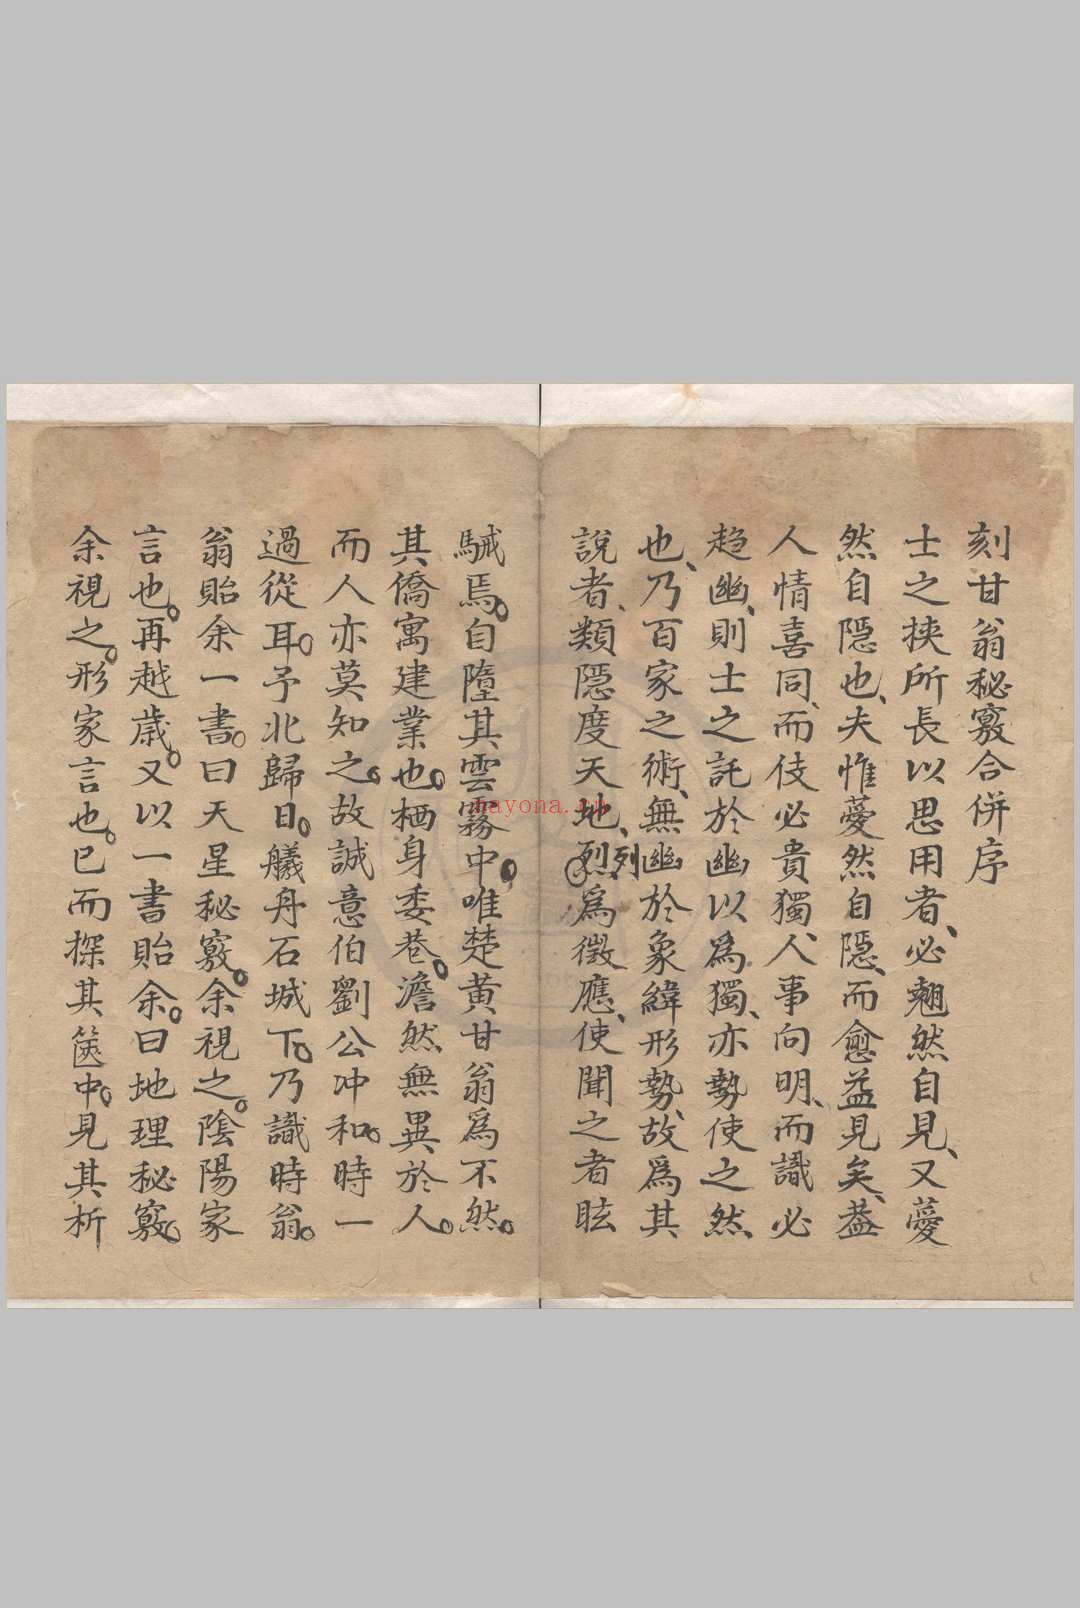 刻甘翁秘竅合併序
士之挾所長以思用者、必翹然自見、又薆
然自隱也、夫惟薆然自隱、而愈益見矣、葢
人情喜同、而伎必貴獨、人事向明、而識必
趋幽、則士之託於幽以為獨、亦勢使之然
也、乃百家之術、無幽於象緯形勢、故爲其
說者、類隱度天地、烈列爲徵應、使聞之者眩
駴焉。自墮其雲霧中。唯楚黃甘翁爲不然。
其僑寓建業也。栖身委巷。澹然無異於人。
而人亦莫知之。故誠意伯劉公冲和。時一
過從耳。予北歸日。艤舟石城下。乃識時翁。
翁貽余一書。曰天星秘竅。余視之。陰陽家
言也。再越歲。又以一書貽余。曰地理秘竅。
余視之。形家言也。已而探其篋中。見其析